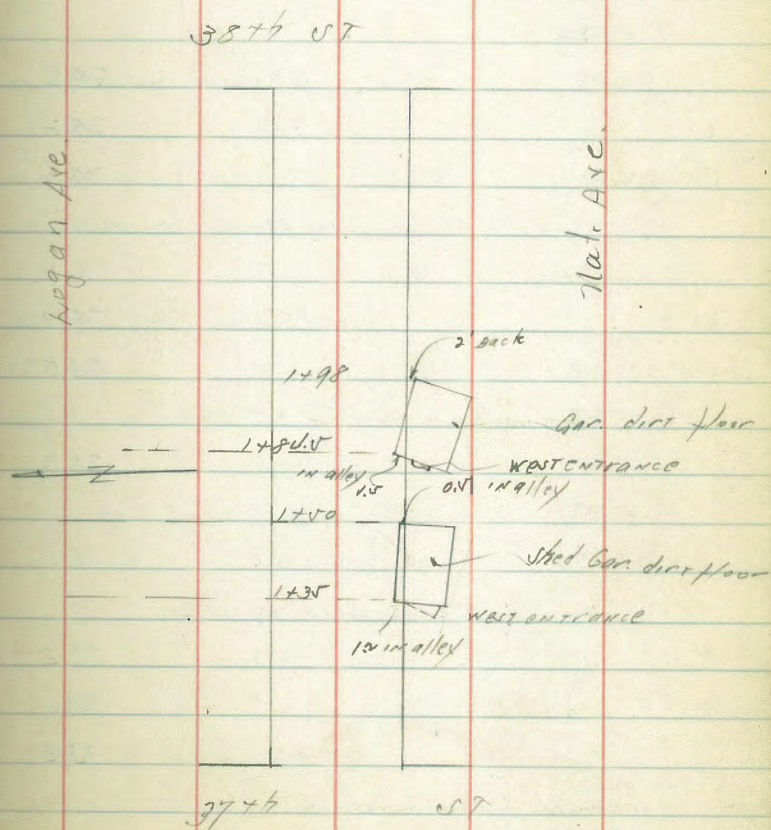 38th ST.
Logan Ave.
Nat. Ave.
2' Back
1+98
Gar. dirt floor
1+84.5
West Entrance
in alley
1.5
0.5 in alley
1+50
Shed Gar. dirt floor
1+35
West entrance
in alley
37th ST